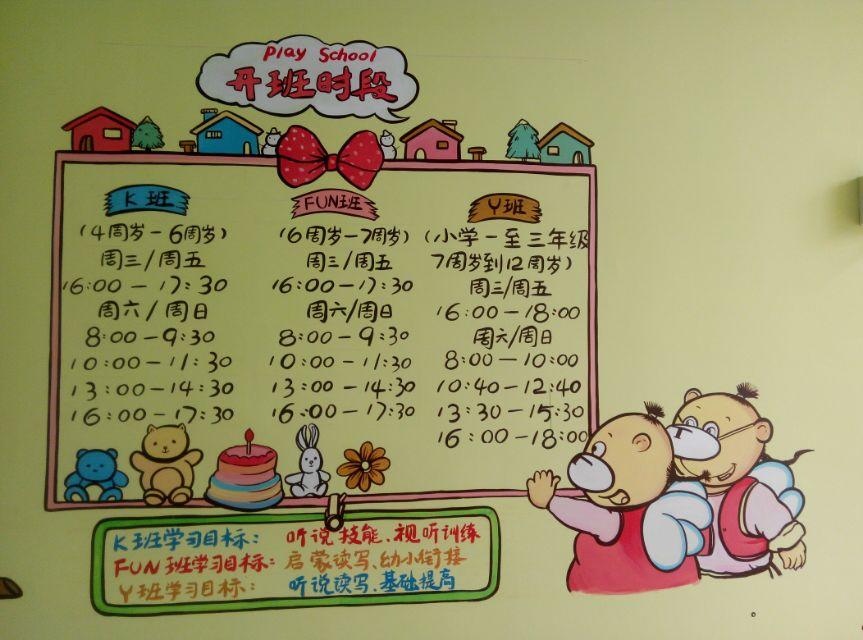 Play School
开班时段
K班
(4周岁-6周岁)
周三/周五
16:00-17:30
周六/周日
8:00-9:30
10:00-11:30
13:00-14:30
16:00-17:30
FUN班
(6周岁-7周岁)
周三/周五
16:00-17:30
周六/周日
8:00-9:30
10:00-11:30
13:00-14:30
16:00-17:30
Y班
(小学一至三年级
7周岁到12周岁)
周三/周五
16:00-18:00
周六/周日
8:00-10:00
10:40-12:40
13:30-15:30
16:00-18:00
K班学习目标: 听说技能、视听训练
FUN班学习目标: 启蒙读写、幼小衔接
Y班学习目标: 听说读写、基础提高